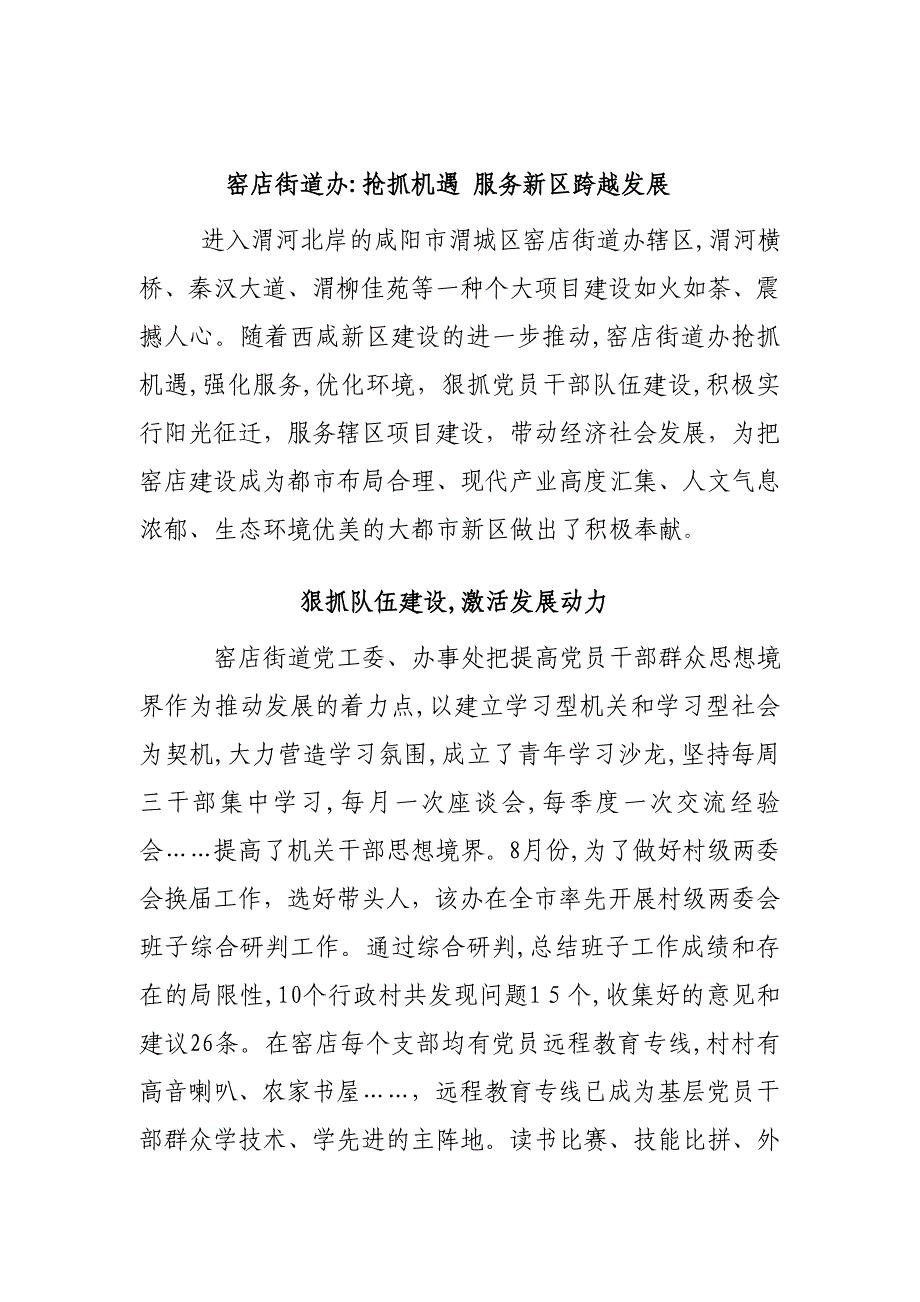 窑店街道办:抢抓机遇 服务新区跨越发展
进入渭河北岸的咸阳市渭城区窑店街道办辖区,渭河横
桥、秦汉大道、渭柳佳苑等一种个大项目建设如火如荼、震
撼人心。随着西咸新区建设的进一步推动,窑店街道办抢抓
机遇,强化服务,优化环境，狠抓党员干部队伍建设,积极实
行阳光征迁，服务辖区项目建设，带动经济社会发展，为把
窑店建设成为都市布局合理、现代产业高度汇集、人文气息
浓郁、生态环境优美的大都市新区做出了积极奉献。
狠抓队伍建设,激活发展动力
窑店街道党工委、办事处把提高党员干部群众思想境
界作为推动发展的着力点,以建立学习型机关和学习型社会
为契机,大力营造学习氛围,成立了青年学习沙龙,坚持每周
三干部集中学习,每月一次座谈会,每季度一次交流经验
会……提高了机关干部思想境界。8月份,为了做好村级两委
会换届工作，选好带头人，该办在全市率先开展村级两委会
班子综合研判工作。通过综合研判,总结班子工作成绩和存
在的局限性,10个行政村共发现问题1５个,收集好的意见和
建议26条。在窑店每个支部均有党员远程教育专线,村村有
高音喇叭、农家书屋……，远程教育专线已成为基层党员干
部群众学技术、学先进的主阵地。读书比赛、技能比拼、外